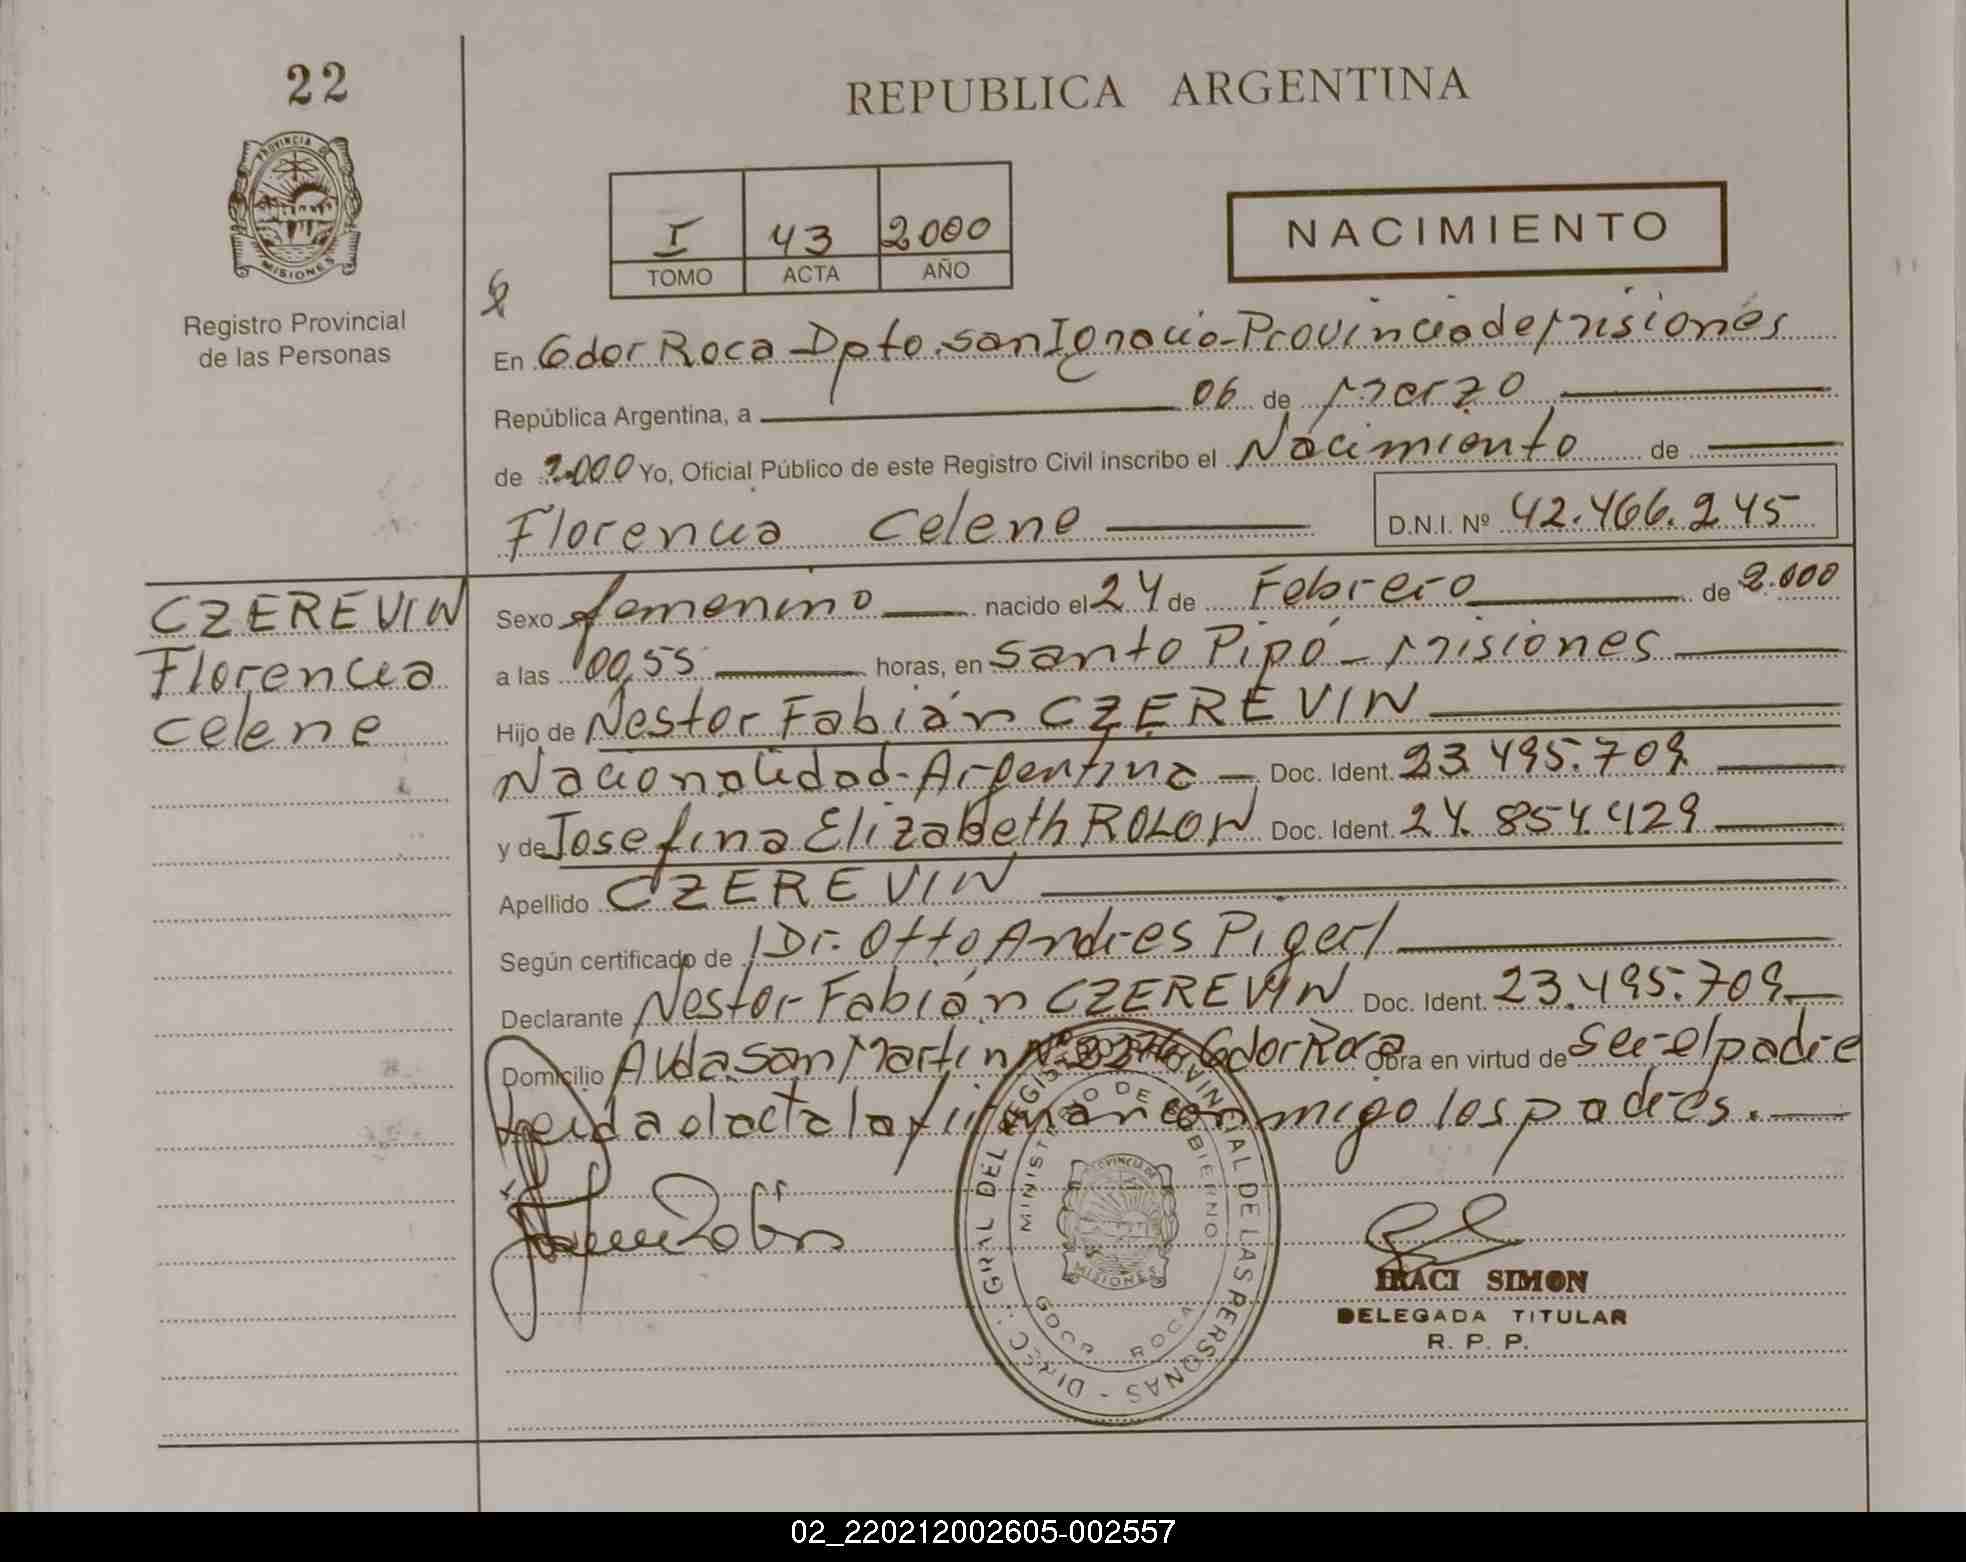 22
REPUBLICA ARGENTINA
PROVINCIA DE
MISIONES
Registro Provincial
de las Personas
I 43 2000
TOMO ACTA AÑO
NACIMIENTO
En Gdor Roca - Dpto. San Ignacio - Provincia de Misiones
República Argentina, a 06 de Marzo
de 2.000 Yo, Oficial Público de este Registro Civil inscribo el Nacimiento de
Florencia Celene D.N.I. Nº 42.466.245
CZEREVIN
Florencia
Celene
Sexo femenino nacido el 24 de Febrero de 2.000
a las 00,55 horas, en Santo Pipó - Misiones
Hijo de Nestor Fabián CZEREVIN
Nacionalidad - Argentina - Doc. Ident. 23.495.709
y de Josefina Elizabeth ROLON Doc. Ident. 24.854.429
Apellido CZEREVIN
Según certificado de Dr. Otto Andres Pigerl
Declarante Nestor Fabián CZEREVIN Doc. Ident. 23.495.709
Domicilio Avda San Martin Nº Gdor Roca Obra en virtud de Ser el padre
Leida el acta la firman conmigo los padres.
DIREC. GRAL DEL REGISTRO PROVINCIAL DE LAS PERSONAS -
MINISTERIO DE GOBIERNO
PROVINCIA DE
MISIONES
GDOR ROCA
IRACI SIMON
DELEGADA TITULAR
R. P. P.
02_220212002605-002557